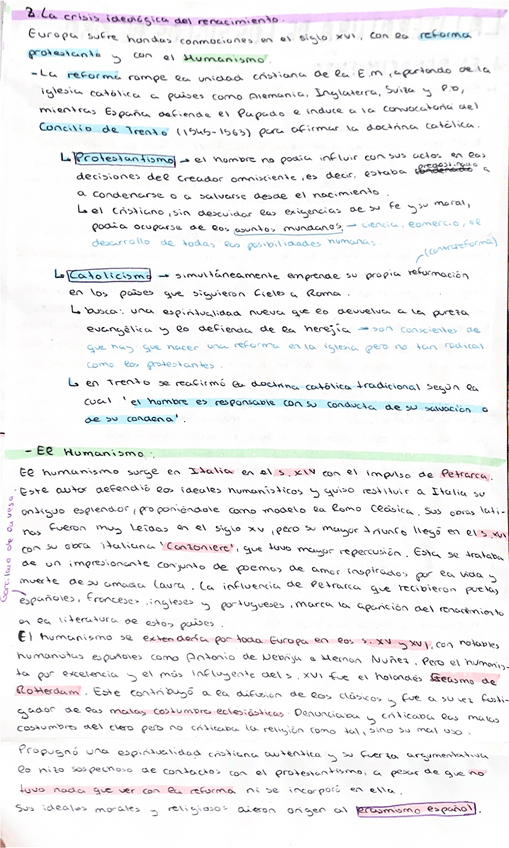 2. La crisis ideológica del renacimiento.
Europa sufre hondas conmociones en el siglo XVI, con la reforma
protestante y con el Humanismo
- La reforma rompe la unidad cristiana de la E.M, apartando de la
iglesia católica a países como Alemania, Inglaterra, Suiza y P.B,
mientras España defiende el Papado e induce a la convocatoria del
Concilio de Trento (1545-1563) para afirmar la doctrina católica.
↳ Protestantismo → el hombre no podía influir con sus actos en las
decisiones del creador omnisciente, es decir, estaba predestinado a
a condenarse o a salvarse desde el nacimiento.
↳ el cristiano, sin descuidar las exigencias de su fe y su moral,
podía ocuparse de los asuntos mundanos → ciencia, comercio, el
desarrollo de todas las posibilidades humanas.
(contrareforma)
↳ Catolicismo → simultáneamente emprende su propia reformación
en los países que siguieron fieles a Roma.
↳ busca: una espiritualidad nueva que lo devuelva a la pureza
evangélica y lo defienda de la herejía → son conscientes de
que hay que hacer una reforma en la iglesia pero no tan radical
como los protestantes.
↳ en Trento se reafirmó la doctrina católica tradicional según la
cual 'el hombre es responsable con su conducta de su salvación o
de su condena'.
- El Humanismo:
El humanismo surge en Italia en el s. XIV con el impulso de Petrarca.
Este autor defendió los ideales humanísticos y quiso restituir a Italia su
antiguo esplendor, proponiéndole como modelo la Roma Clásica. Sus obras lati-
nas fueron muy leídas en el siglo XV, pero su mayor triunfo llegó en el s. XVI
con su obra italiana 'Canzoniere', que tuvo mayor repercusión. Esta se trataba
de un impresionante conjunto de poemas de amor inspirados por la vida y
muerte de su amada Laura. La influencia de Petrarca que recibieron poetas
Garcilaso de la Vega
españoles, franceses, ingleses y portugueses, marca la aparición del renacimiento
en la literatura de estos países.
El humanismo se extendería por toda Europa en los s. XV y XVI, con notables
humanistas españoles como Antonio de Nebrija o Hernan Nuñez. Pero el humanis-
ta por excelencia y el más influyente del s. XVI fue el holandés Erasmo de
Rotterdam. Este contribuyó a la difusión de los clásicos y fue a su vez fusti-
gador de las malas costumbres eclesiásticas. Denunciaba y criticaba las malas
costumbres del clero pero no criticaba la religión como tal, sino su mal uso.
Propugnó una espiritualidad cristiana auténtica y su fuerza argumentativa
lo hizo sospechoso de contactos con el protestantismo, a pesar de que no
tuvo nada que ver con la reforma ni se incorporó en ella.
Sus ideales morales y religiosos dieron origen al erasmismo español.